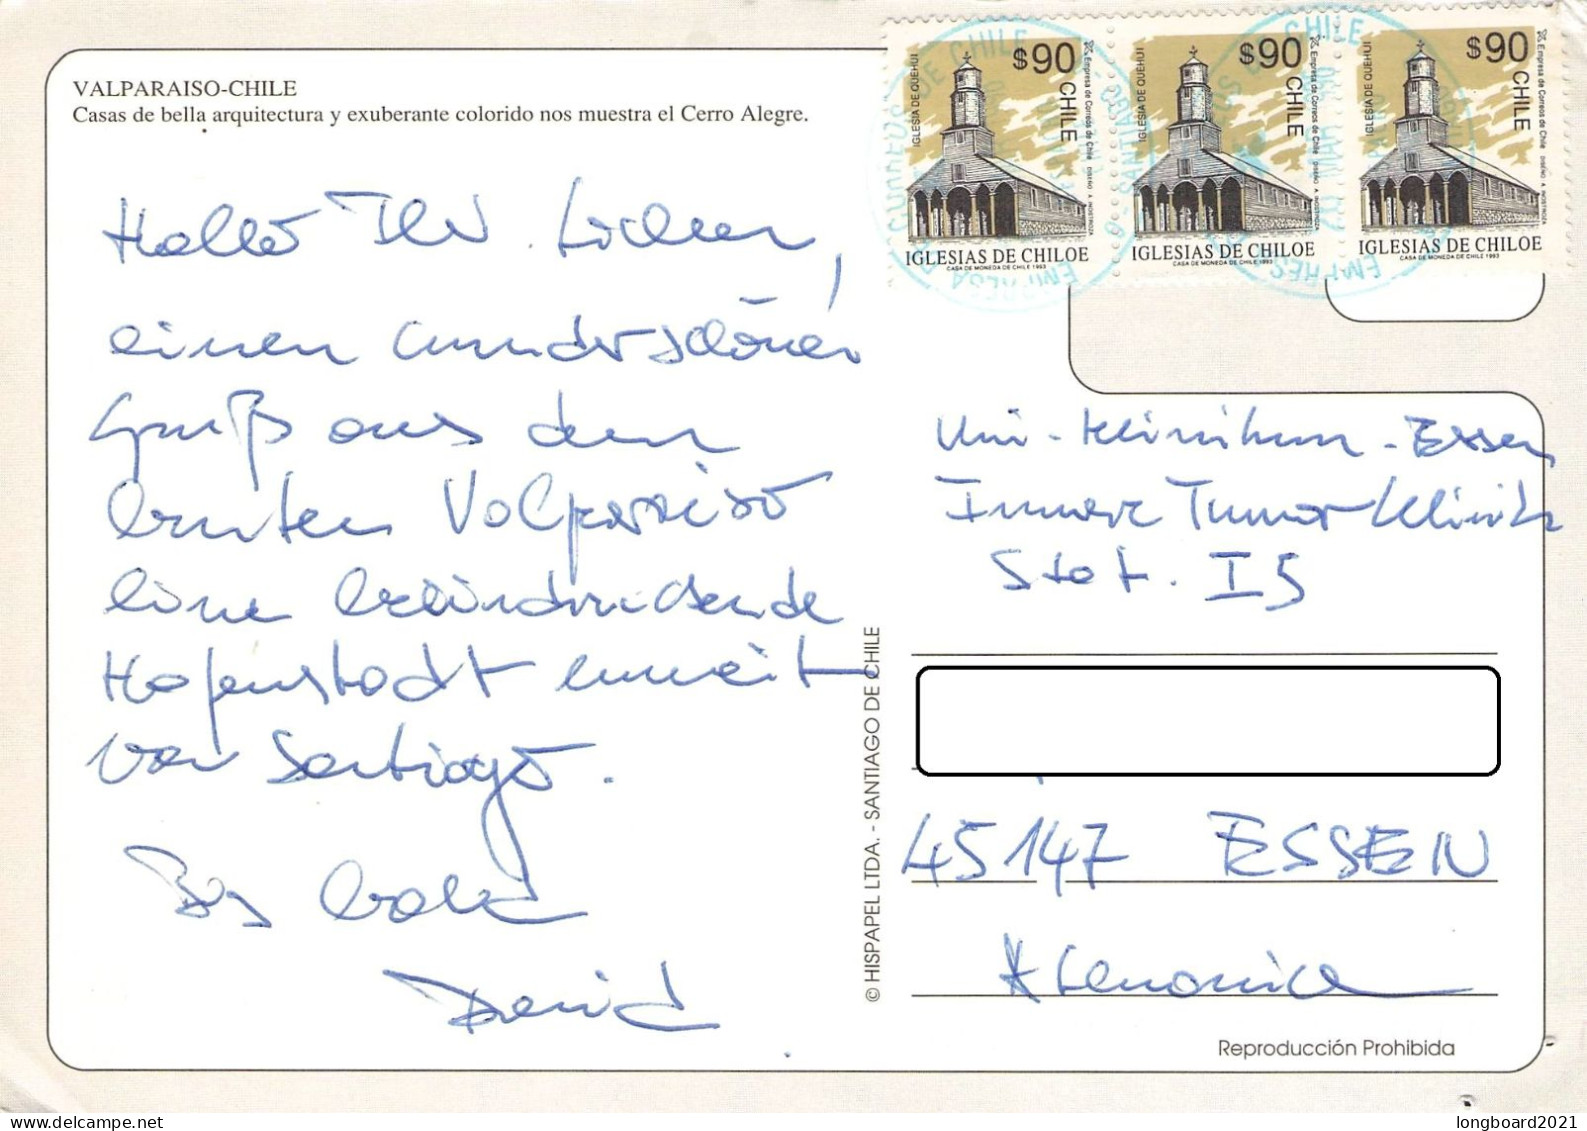 VALPARAISO-CHILE
Casas de bella arquitectura y exuberante colorido nos muestra el Cerro Alegre.
Hallo Ihr Lieben,
einen wunderschönen
Gruß aus dem
bunten Valparaiso
eine beeindruckende
Hafenstadt unweit
von Santiago.
Bis bald
David
$90
CHILE
IGLESIA DE QUEHUI
Empresa de Correos de Chile DISEÑO A INOSTROZA
IGLESIAS DE CHILOE
CASA DE MONEDA DE CHILE 1993
$90
CHILE
IGLESIA DE QUEHUI
Empresa de Correos de Chile DISEÑO A INOSTROZA
IGLESIAS DE CHILOE
CASA DE MONEDA DE CHILE 1993
$90
CHILE
IGLESIA DE QUEHUI
Empresa de Correos de Chile DISEÑO A INOSTROZA
IGLESIAS DE CHILOE
CASA DE MONEDA DE CHILE 1993
Uni-Klinikum-Essen
Innere Tumorklinik
Stat. I5
45147 ESSEN
Alemania
© HISPAPEL LTDA. - SANTIAGO DE CHILE
Reproducción Prohibida
longboard2021